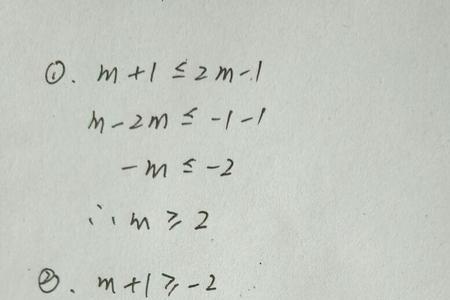 ①. m+1≤2m-1
m-2m≤-1-1
-m≤-2
∴m≥2
②. m+1≥-2